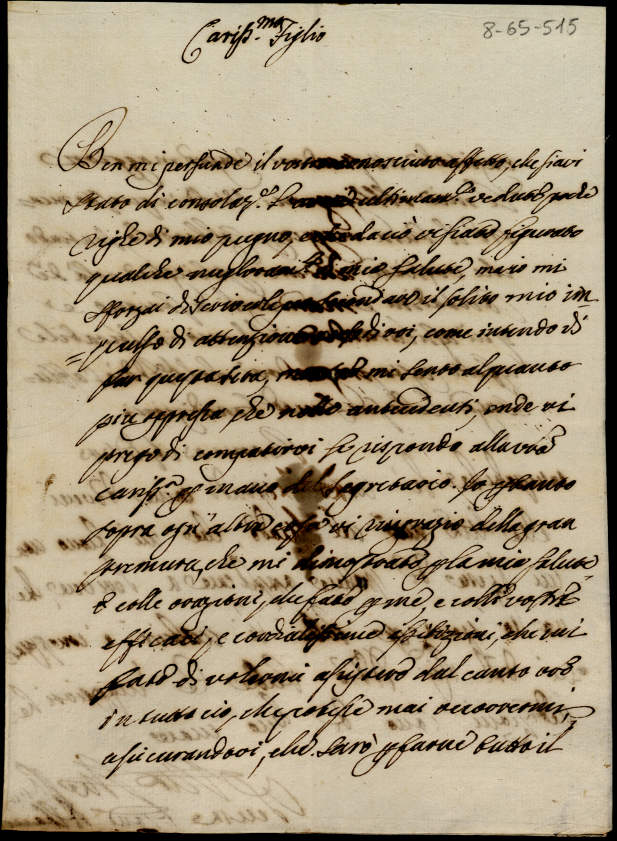 8-65-515
Cariss.mo Figlio
Ben mi persuade il vostro conosciuto affetto, che siavi
stato di consolaz.e l' ultimam.te vedute poche
righe di mio pugno, e che da ciò vi siate figurato
qualche miglioram.to di mia salute, ma io mi
sforzai di scrivere il solito mio im=
=pulso di attenzione verso di voi, come intendo di
far questa sera, mi sento alquanto
più oppressa che nelle antecedenti, onde vi
prego di compatirmi se rispondo alla vrã
cariss.a p mano del Segretario. Io p tanto
sopra ogn' altra cosa vi ringrazio della gran
premura, che mi dimostrate p la mia salute
e colle orazioni, che fate p me, e colle vostre
efficaci, e cordialissime esibizioni, che mi
fate di volermi assistere dal canto vrõ
in tutto ciò, che potesse mai occorrermi,
assicurandovi, che sarò p farne tutto il